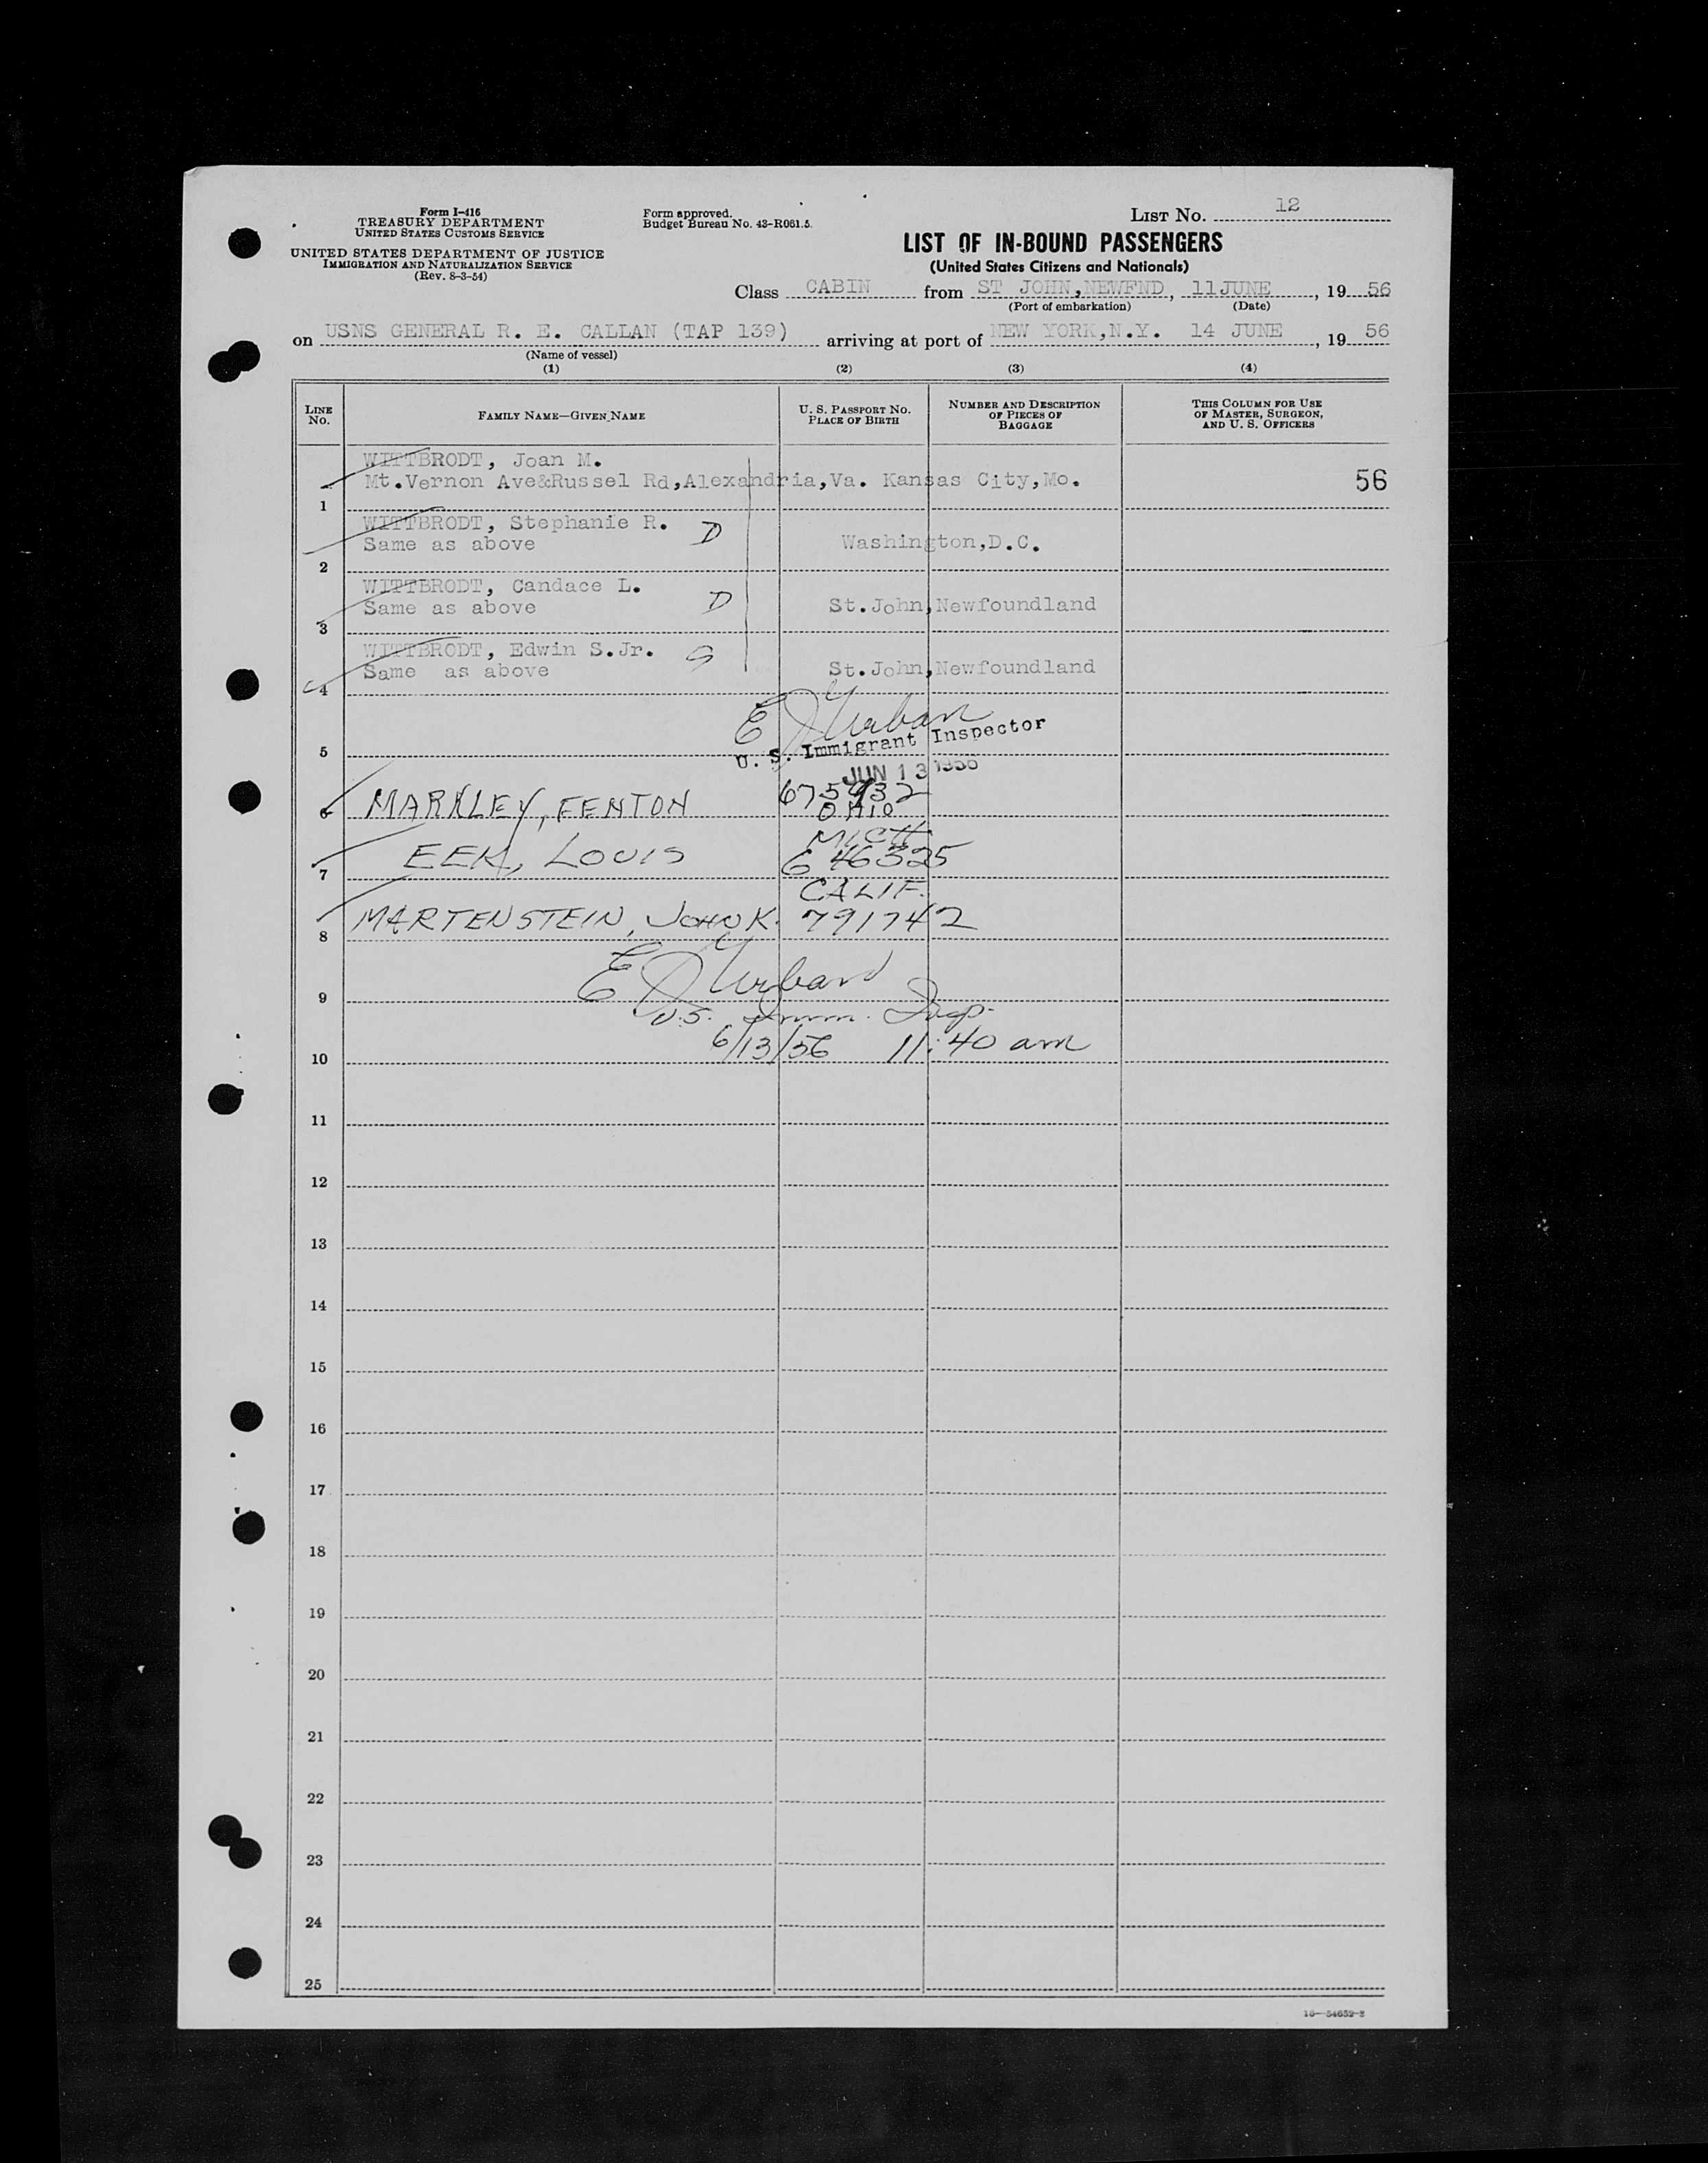 Form I-416
TREASURY DEPARTMENT
UNITED STATES CUSTOMS SERVICE
UNITED STATES DEPARTMENT OF JUSTICE
IMMIGRATION AND NATURALIZATION SERVICE
(Rev. 8-3-54)
Form approved.
Budget Bureau No. 43-R061.5.
LIST NO. 12
LIST OF IN-BOUND PASSENGERS
(United States Citizens and Nationals)
Class CABIN from ST JOHN, NEWFND, 11 JUNE, 19 56
(Port of embarkation) (Date)
on USNS GENERAL R. E. CALLAN (TAP 139) arriving at port of NEW YORK, N.Y. 14 JUNE, 19 56
(Name of vessel)
(1) (2) (3) (4)
LINE NO. FAMILY NAME—GIVEN NAME U. S. PASSPORT NO. PLACE OF BIRTH NUMBER AND DESCRIPTION OF PIECES OF BAGGAGE THIS COLUMN FOR USE OF MASTER, SURGEON, AND U. S. OFFICERS
WITTBRODT, Joan M.
Mt.Vernon Ave&Russel Rd,Alexandria,Va. Kansas City,Mo. 56
1
WITTBRODT, Stephanie R. D
Same as above Washington,D.C.
2
WITTBRODT, Candace L. D
Same as above St.John,Newfoundland
3
WITTBRODT, Edwin S.Jr. S
Same as above St.John,Newfoundland
4
E
U. S. Immigrant Inspector
5
JUN 13 1956
6 MARKLEY, FENTON
OHIO
MICH
7 EEK, LOUIS E 46325
CALIF.
8 MARTENSTEIN, JOHN K. 791742
E
9
U.S. Imm. Insp.
6/13/56 11:40 am
10
11
12
13
14
15
16
17
18
19
20
21
22
23
24
25